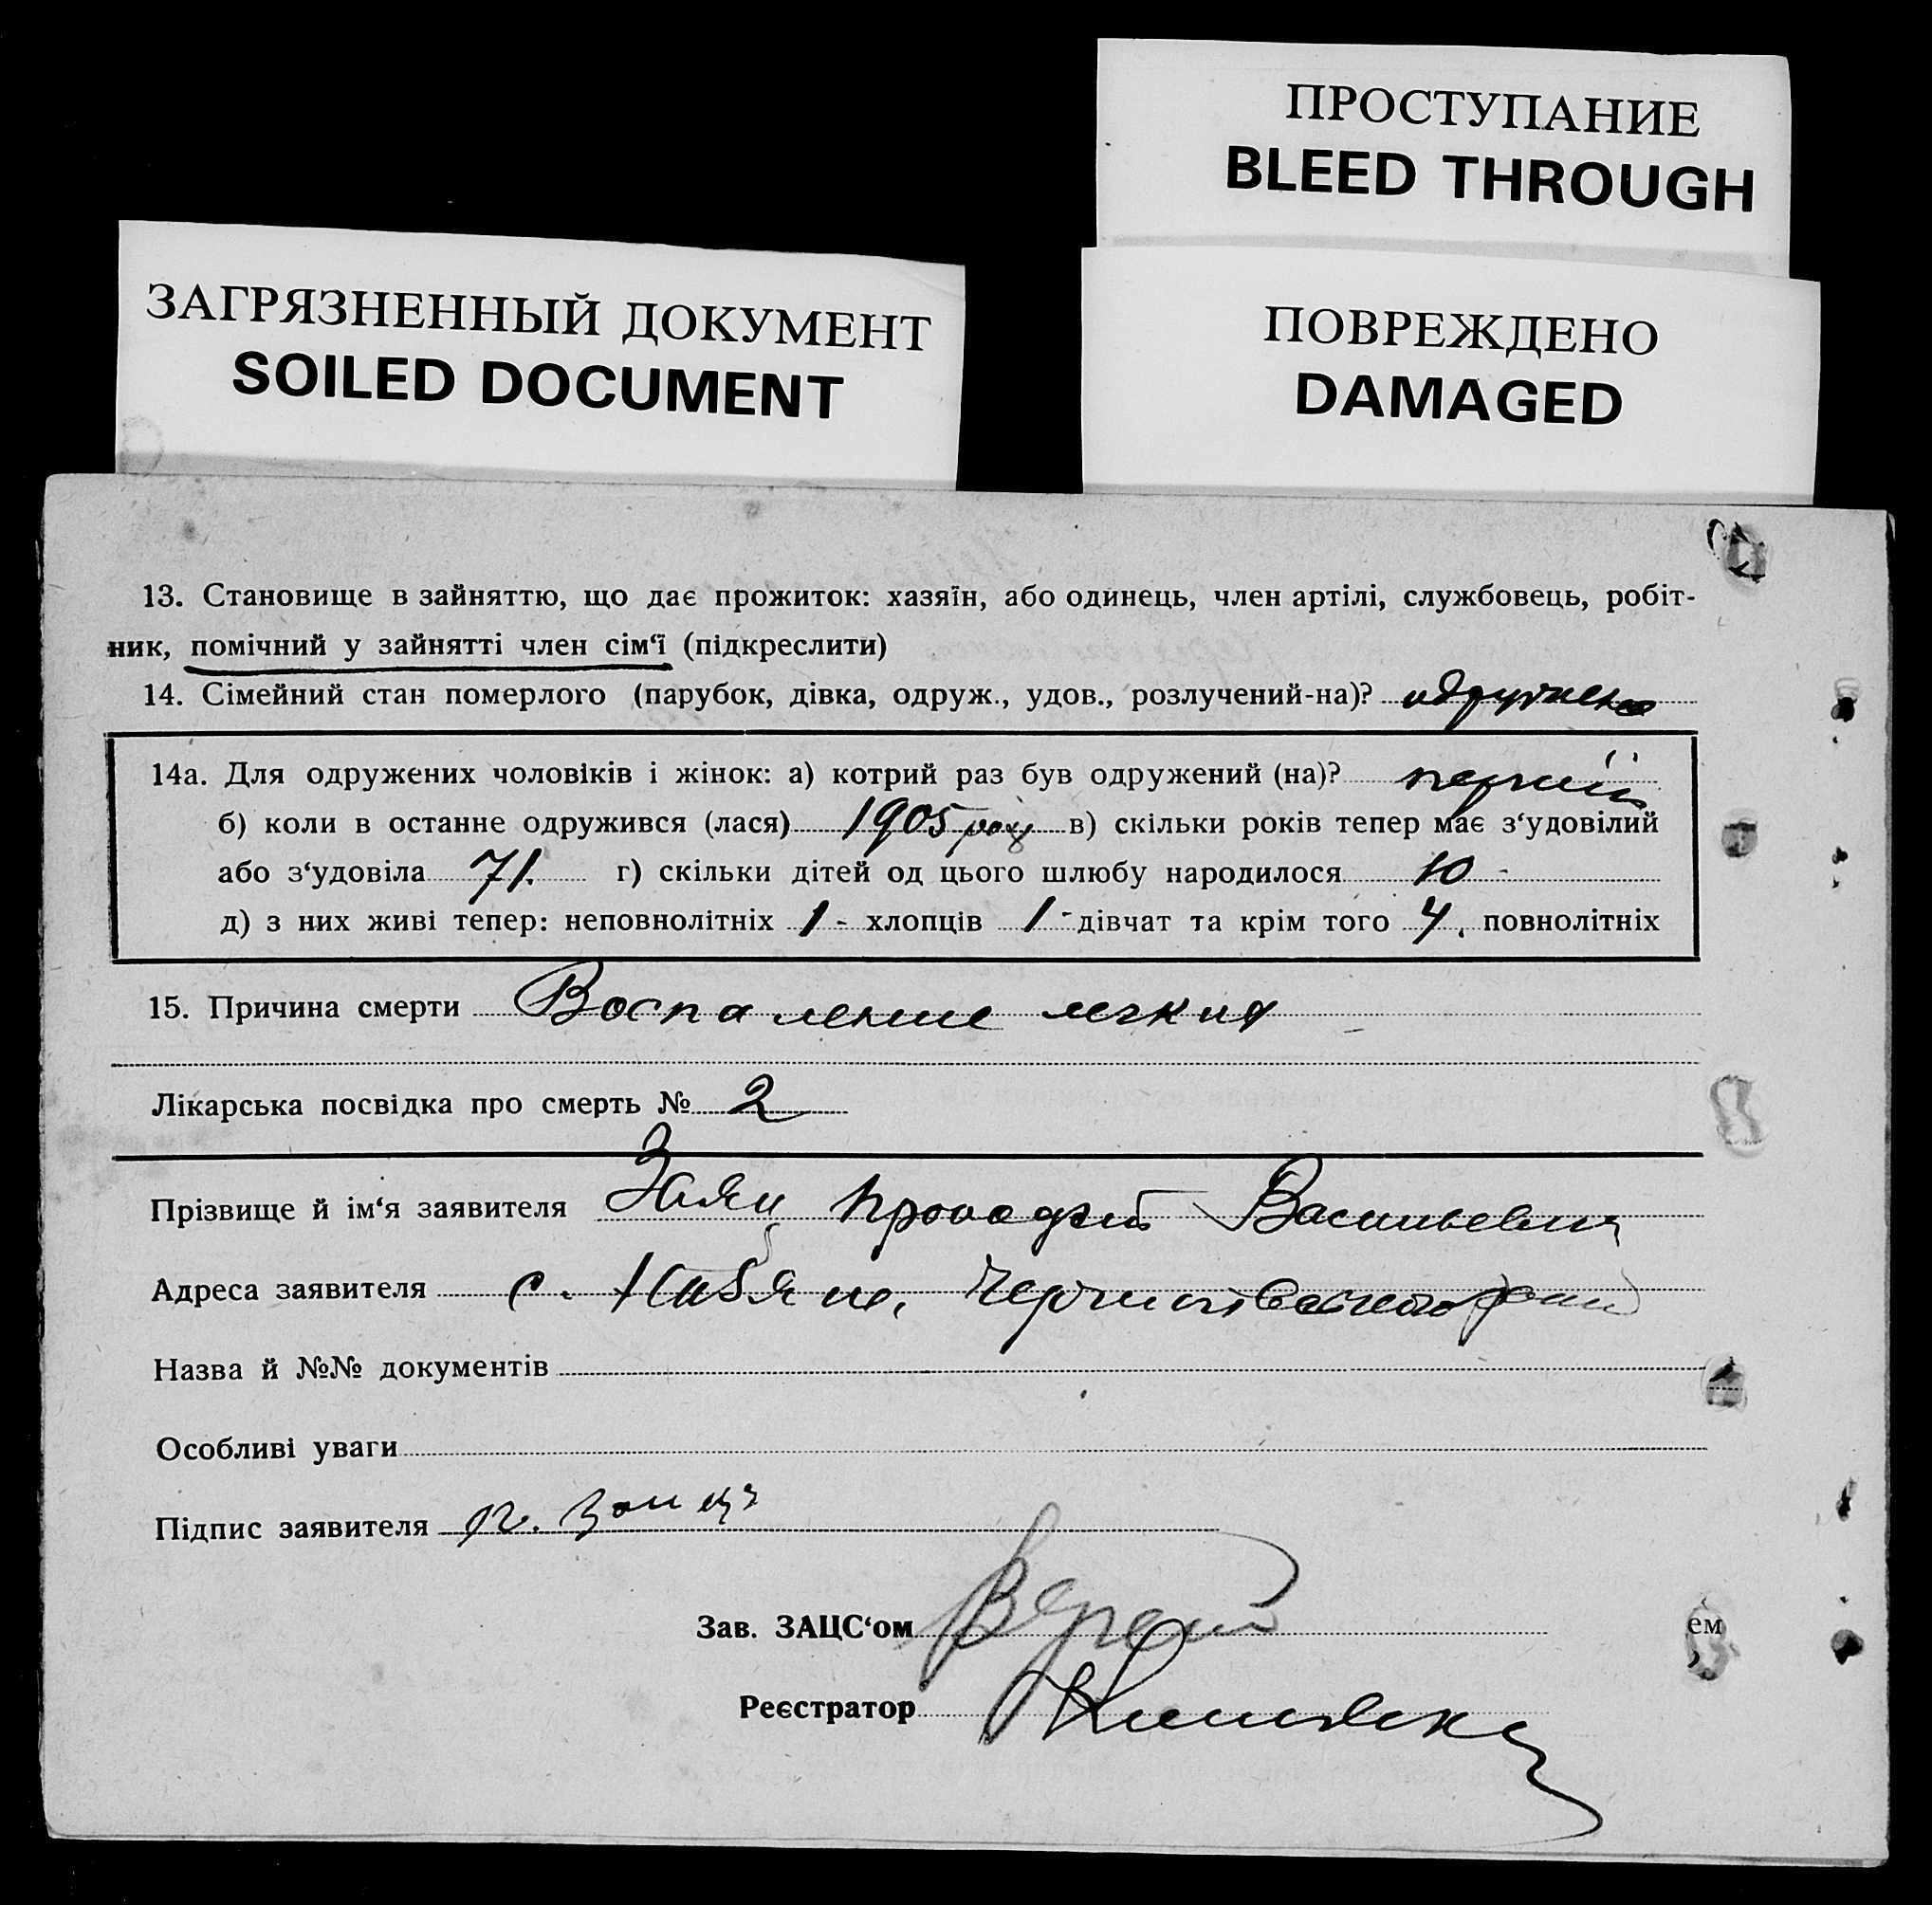 ПРОСТУПАНИЕ
BLEED THROUGH
ЗАГРЯЗНЕННЫЙ ДОКУМЕНТ
SOILED DOCUMENT
ПОВРЕЖДЕНО
DAMAGED
13. Становище в зайняттю, що дає прожиток: хазяїн, або одинець, член артілі, службовець, робіт-
ник, помічний у зайнятті член сім‘ї (підкреслити)
14. Сімейний стан померлого (парубок, дівка, одруж., удов., розлучений-на)? одружена
14а. Для одружених чоловіків і жінок: а) котрий раз був одружений (на)?
б) коли в останне одружився (лася) 1905 року в) скільки років тепер має з‘удовілий
або з‘удовіла 71. г) скільки дітей од цього шлюбу народилося 10 -
д) з них живі тепер: неповнолітніх 1 - хлопців 1 - дівчат та крім того 4. повнолітніх
15. Причина смерти Воспаление легких
Лікарська посвідка про смерть № 2
Прізвище й ім‘я заявителя Заяц Васильевич
Адреса заявителя с.
Назва й №№ документів
Особливі уваги
Підпис заявителя
Зав. ЗАЦС‘ом
ем
Реєстратор